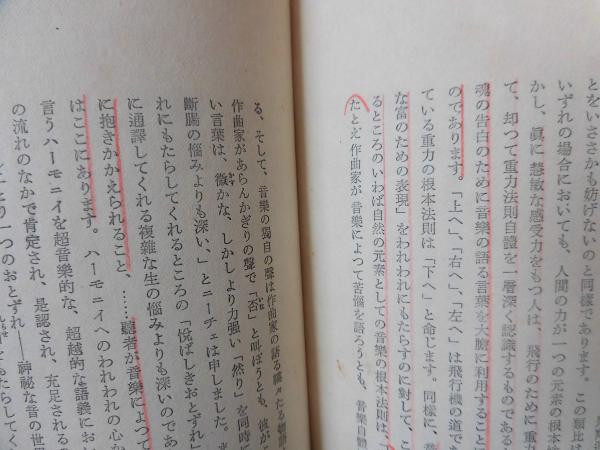 とをいささかも妨げないのと同樣であります。この類比は
いずれの場合においても、人間の力が一つの元素の根本
かし、眞に慧敏な感受力をもつ人は、飛行のために重力
て、却つて重力法則自體を一層深く認識するものである
魂の告白のために音樂の語る言葉を大膽に利用すること
のであります。「上へ」、「右へ」、「左へ」は飛行機の道であ
ている重力の根本法則は「下へ」と命じます。同樣に、
な富のための表現」をわれわれにもたらすのに對して、こ
るところのいわば自然の元素としての音樂の根本法則は、
たとえ作曲家が音樂によつて苦惱を語ろうとも、音樂自體
る、そして、音樂の獨自の聲は作曲家の語る
作曲家があらんかぎりの聲で「否」と叫ぼうとも、彼が
い言葉は、微かな、しかしより力强い「然り」を同時に
斷腸の惱みよりも深い、」とニーチェは申しました。
れにもたらしてくれるところの「悅ばしきおとずれ」
に通譯してくれる複雜な生の惱みよりも深いのであ
に抱きかかえられること、……聽者が音樂によつて
はここにあります。ハーモニイへのわれわれの心か
言うハーモニイを超音樂的な、超越的な語義にお
の流れのなかで肯定され、是認され、充足される
一つのおとずれ——神祕な音の世
もたらしてく